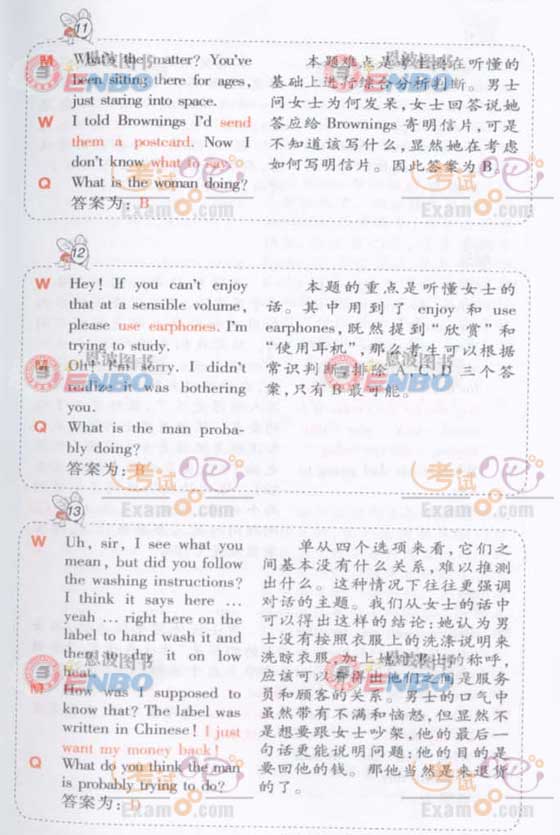 11
M What's the matter? You've
been sitting there for ages,
just staring into space.
W I told Brownings I'd send
them a postcard. Now I
don't know what to say.
Q What is the woman doing?
答案为：B
本题难点是考生须在听懂的
基础上进行综合分析判断。男士
问女士为何发呆，女士回答说她
答应给 Brownings 寄明信片，可是
不知道该写什么，显然她在考虑
如何写明信片。因此答案为 B。
恩波图书
ENBO
恩波图书
ENBO
考试吧
Exam8.com
考试吧
Exam8.com
12
W Hey! If you can't enjoy
that at a sensible volume,
please use earphones. I'm
trying to study.
M Oh! I'm sorry. I didn't
realize it was bothering
you.
Q What is the man proba-
bly doing?
答案为：B
本题的重点是听懂女士的
话。其中用到了 enjoy 和 use
earphones，既然提到“欣赏”和
“使用耳机”，那么考生可以根据
常识判断，排除 A、C、D 三个答
案，只有 B 最可能。
恩波图书
ENBO
恩波图书
ENBO
考试吧
Exam8.com
考试吧
Exam8.com
13
W Uh, sir, I see what you
mean, but did you follow
the washing instructions?
I think it says here ...
yeah ... right here on the
label to hand wash it and
then to dry it on low
heat.
M How was I supposed to
know that? The label was
written in Chinese! I just
want my money back!
Q What do you think the man
is probably trying to do?
答案为：D
单从四个选项来看，它们之
间基本没有什么关系，难以推测
出什么。这种情况下往往更强调
对话的主题。我们从女士的话中
可以得出这样的结论：她认为男
士没有按照衣服上的洗涤说明来
洗晾衣服。加上她对男士的称呼，
应该可以看得出他们之间是服务
员和顾客的关系。男士的口气中
虽然带有不满和恼怒，但显然不
是想要跟女士吵架，他的最后一
句话更能说明问题：他的目的是
要回他的钱。那他当然是来退货
的了。
恩波图书
ENBO
恩波图书
ENBO
考试吧
Exam8.com
考试吧
Exam8.com